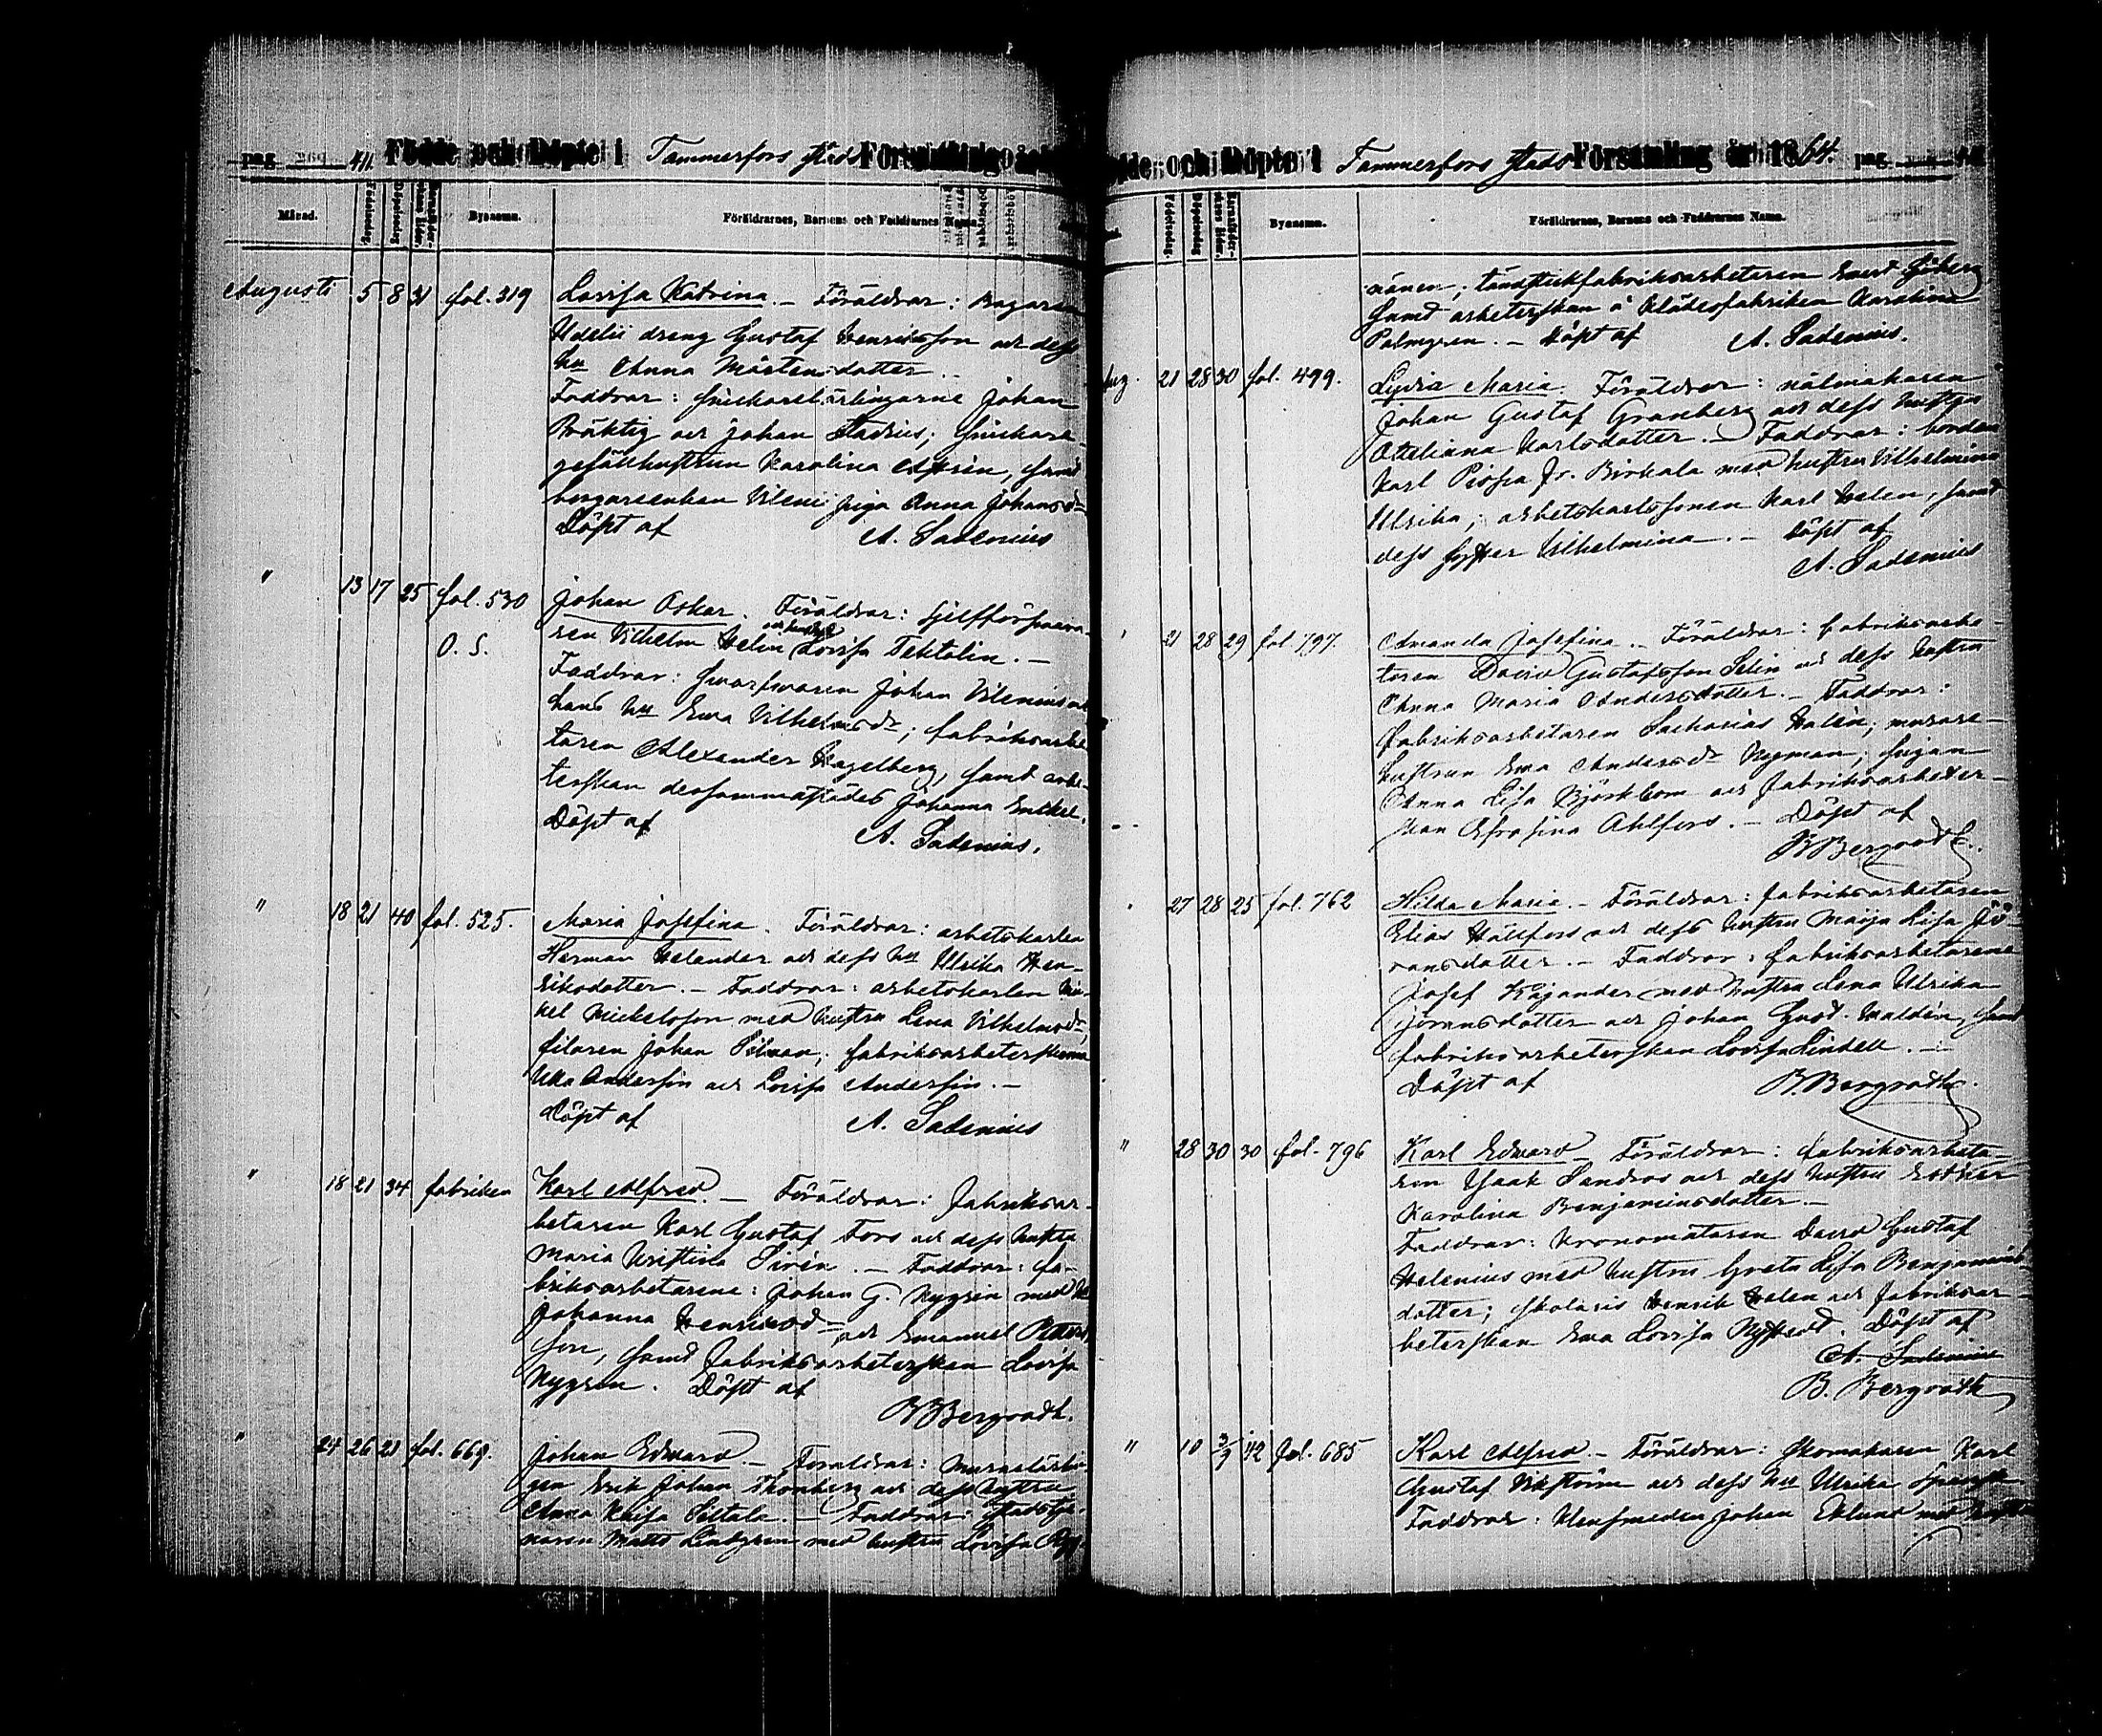 pag. 41. Födde och Döpte i Tammerfors stads Församling
Månad. Födelsedag. Döpelsedag Bynamn. Föräldrarnes, Barnens och Faddrarnes Namn.
Augusti 5 8 31 fol. 319 Lovisa Katrina. – Föräldrar: Bagaren
Udelii dreng Gustaf Henriksson och dess
hu Anna Mårtensdotter. –
Faddrar: snickarelärlingarne Johan
Bräktig och Johan Stadius; snickare-
gesällhustrun Karolina Asprén, samt
borgareenkan Vileni piga Anna Johansdr
Döpt af A. Sadenius
" 13 17 25 fol. 530 Johan Oskar. Föräldrar: sjelfförsvara-
O. S.
ren Vilhelm Helin och hustru Lovisa Taktolin. –
Faddrar: swarfwaren Johan Vilenius och
hans hu Ewa Vilhelmsdr; fabriksarbe-
taren Alexander Hagelberg, samt arbe-
terskan dersammastädes Johanna Enkkel.
Döpt af A. Sadenius.
" 18 21 40 fol. 525. Maria Josefina. Föräldrar: arbetskarlen
Herman Helander och dess hu Ulrika Hen-
riksdotter. – Faddrar: arbetskarlen Mic-
kel Mickelsson med hustru Lena Vilhelmsdr,
filaren Johan Silman; fabriksarbeterskorna
Ulla Andersin och Lovisa Andersin. –
Döpt af A. Sadenius
" 18 21 34 fabriken Karl Alfred. – Föräldrar: fabriksar-
betaren Karl Gustaf Fors och dess hustru
Maria Kristina Sirén. – Faddrar: fa-
briksarbetarene: Johan G. Nygrén med hu
Johanna Henriksdr och Emanuel Petters-
son, samt fabriksarbeterskan Lovisa
Nygren. Döpt af
B Bergroth.
" 24 26 21 fol. 669. Johan Edward. – Föräldrar: murarelärlin-
gen Erik Johan Thonberg och dess hustru
Anna Kaisa Seltala. – Faddrar: stadstje-
naren Matts Lindgren med hustru Lovisa
och Döpte i Tammerfors stads Församling år 1864. pag.
Födelsedag. Döpelsedag Bynamn. Föräldrarnes, Barnens och Faddrarnes Namn.
nänen; tändstickfabriksarbetaren Ewerd Sjöberg
samt arbeterskan å Klädesfabriken Karolina
Palmgren. – Döpt af A. Sadenius.
Aug. 21 28 30 fol. 499. Lydia Maria. Föräldrar: nålmakaren
Johan Gustaf Granberg och dess hustru
Otteliana Karlsdotter. – Faddrar: bonden
Karl Piossa fr. Birkala med hustru Vilhelmina
Ulrika; arbetskarlssonen Karl Helen, samt
dess syster Wilhelmina. – Döpt af
A. Sadenius
" 21 28 29 fol 797. Amanda Josefina. – Föräldrar: fabriksarbe-
taren David Gustafsson Selin och dess hustru
Anna Maria Andersdotter. – Faddrar:
fabriksarbetaren Sacharias Halén; murare-
hustrun Ewa Andersdr Nyman; pigan
Anna Lisa Björkbom och fabriksarbeter-
skan Efrosina Ahlfors. – Döpt af
B Bergroth.
" 27 28 25 fol. 762 Hilda Maria. – Föräldrar: fabriksarbetaren
Elias Hällfors och dess hustru Maija Lisa Jö-
ransdotter. – Faddrar: fabriksarbetarene
Josef Kajander med hustru Lena Ulrika
Göransdotter och Johan Gust. Waldén, samt
fabriksarbeterskan Lovisa Lindell. –
Döpt af B. Bergroth.
" 28 30 30 fol. 796 Karl Edward – Föräldrar: fabriksarbeta-
ren Isaak Sandros och dess hustru Esther
Karolina Benjaminsdotter. –
Faddrar: kronomätaren David Gustaf
Helenius med hustru Greta Lisa Benjamins-
dotter; skolaris Henrik Helen och fabriksar-
beterskan Ewa Lovisa Nystedt. Döpt af
A. Sadenius
B. Bergroth
" 10 3/9 42 fol. 685 Karl Alfred. – Föräldrar: skomakaren Karl
Gustaf Wikström och dess hu Ulrika
Faddrar: klensmeden Johan Eklund med hustru